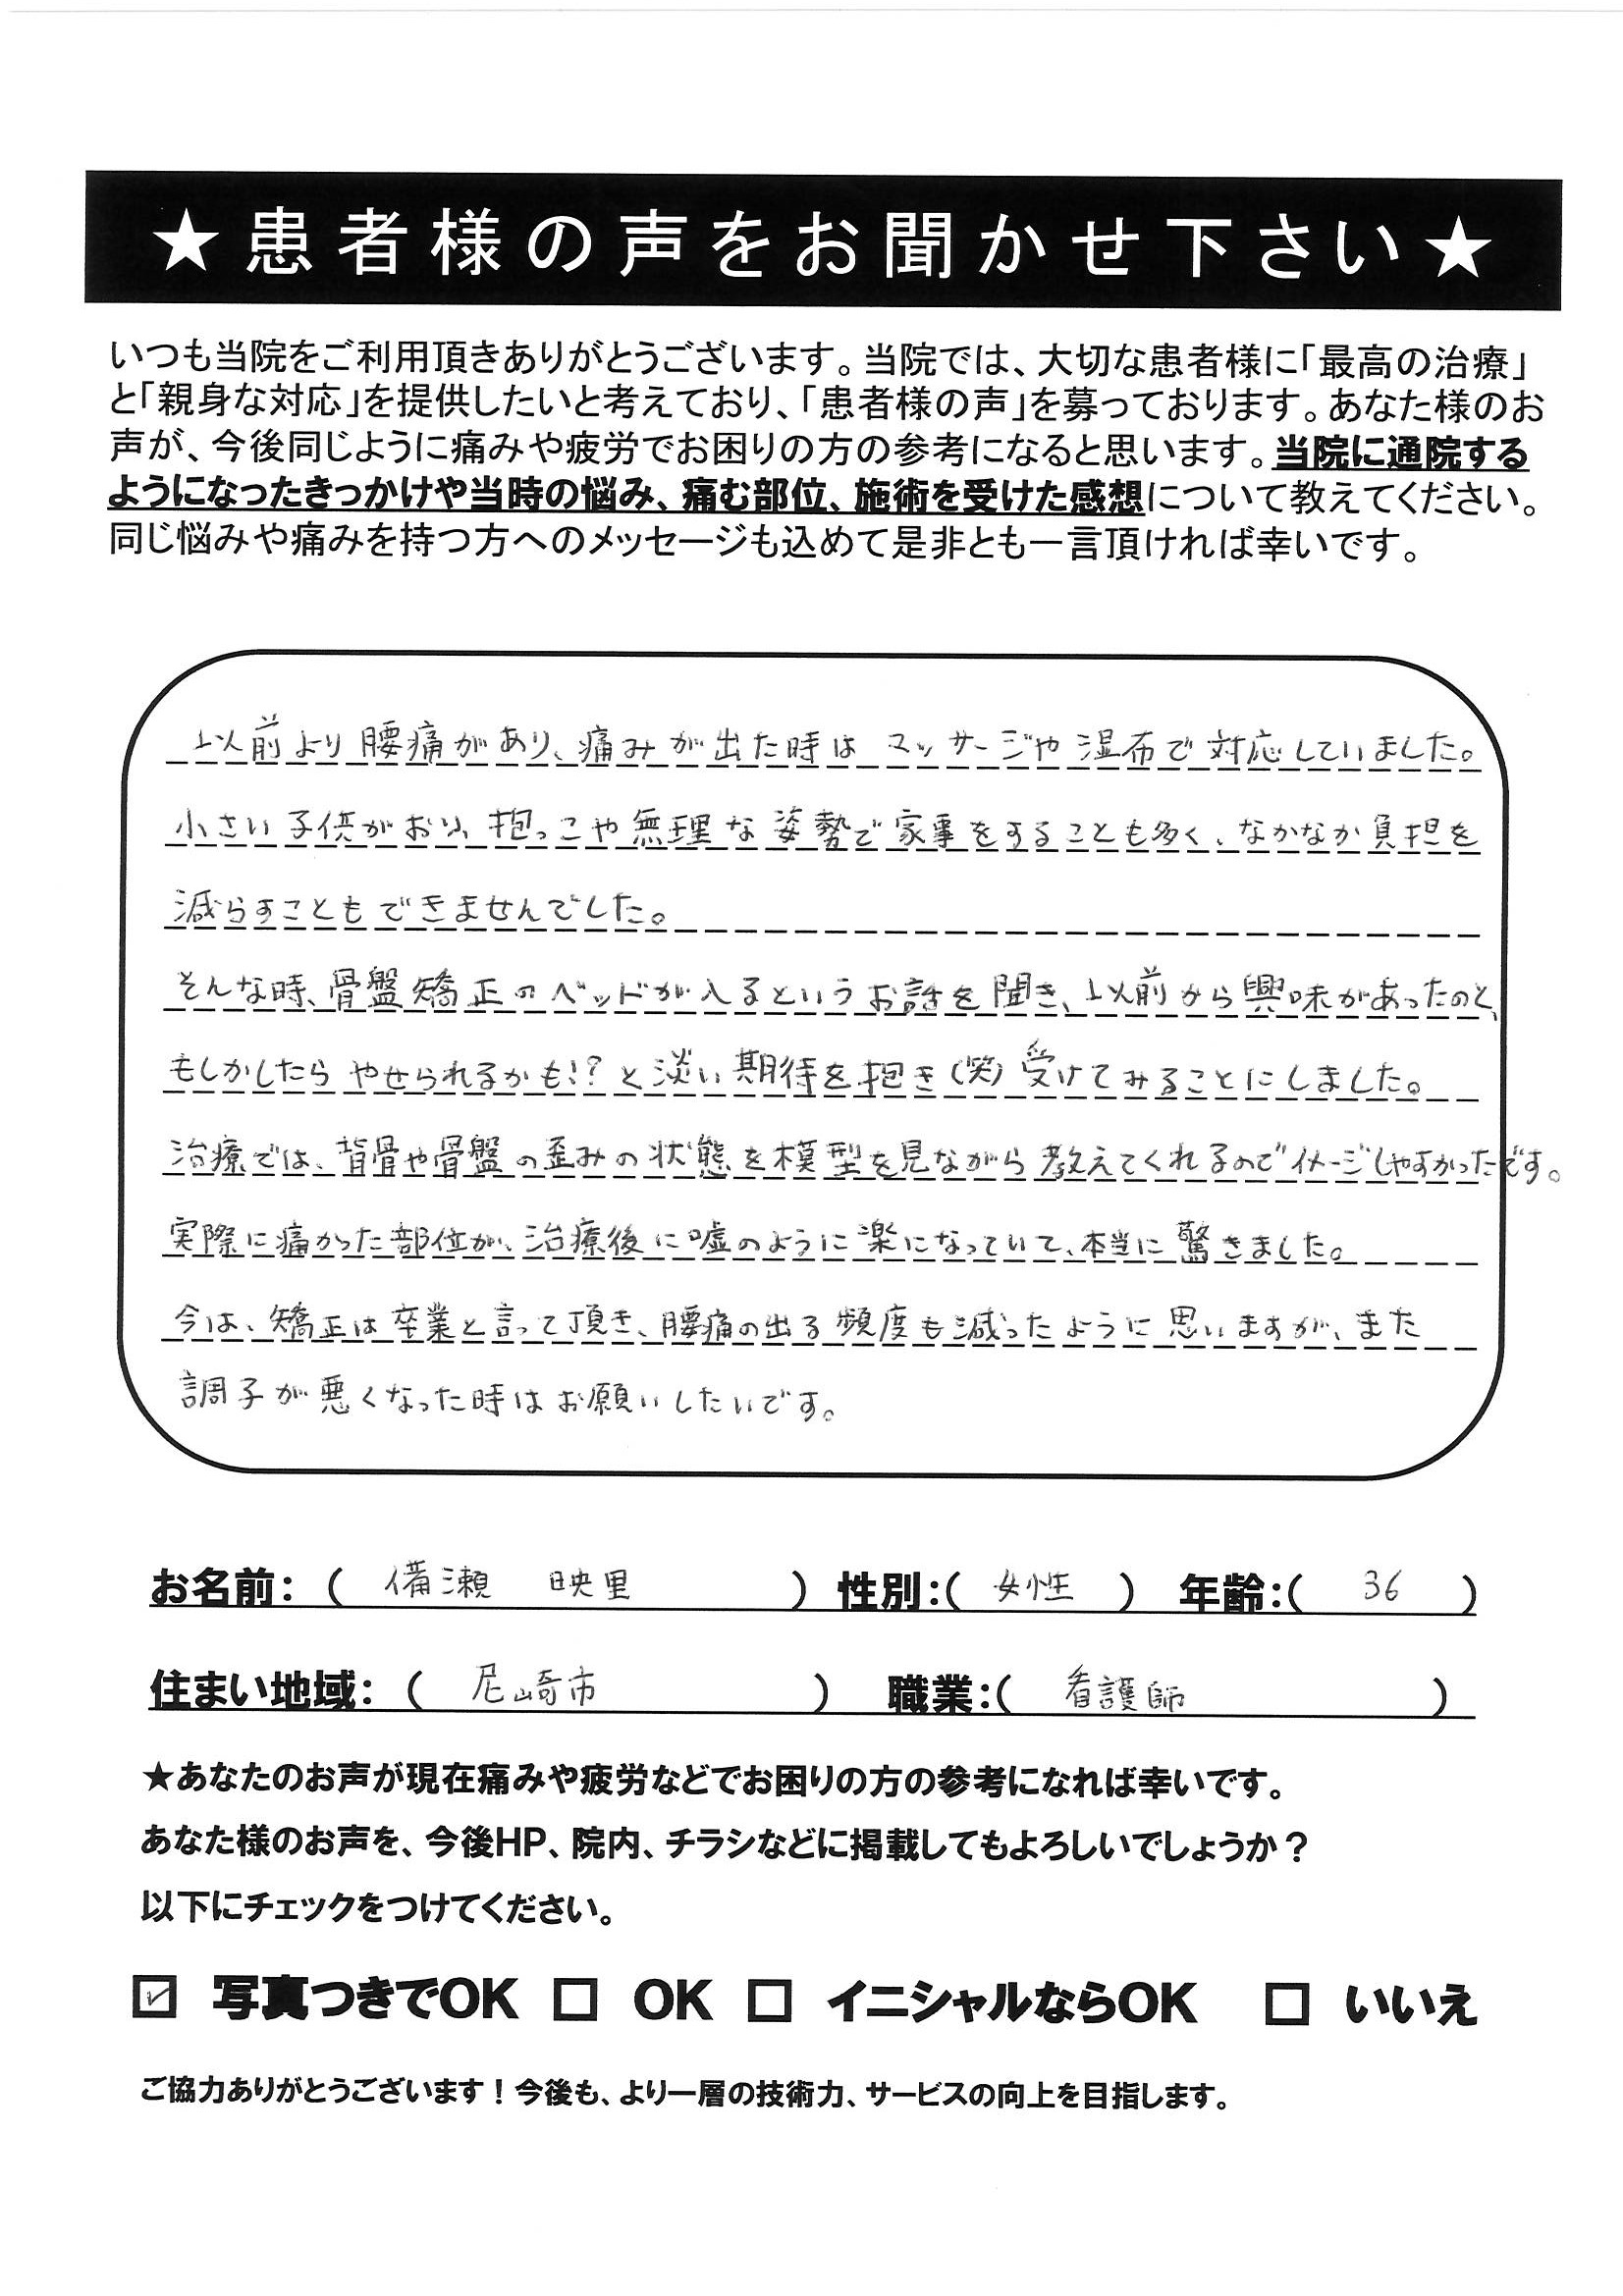 ★患者様の声をお聞かせ下さい★
いつも当院をご利用頂きありがとうございます。当院では、大切な患者様に「最高の治療」
と「親身な対応」を提供したいと考えており、「患者様の声」を募っております。あなた様のお
声が、今後同じように痛みや疲労でお困りの方の参考になると思います。当院に通院する
ようになったきっかけや当時の悩み、痛む部位、施術を受けた感想について教えてください。
同じ悩みや痛みを持つ方へのメッセージも込めて是非とも一言頂ければ幸いです。
以前より腰痛があり、痛みが出た時は マッサージや湿布で対応していました。
小さい子供がおり、抱っこや無理な姿勢で家事をすることも多く、なかなか負担を
減らすこともできませんでした。
そんな時、骨盤矯正のベッドが入るというお話を聞き、以前から興味があったのと、
もしかしたら やせられるかも!? と淡い期待を抱き(笑) 受けてみることにしました。
治療では、背骨や骨盤の歪みの状態を模型を見ながら教えてくれるのでイメージしやすかったです。
実際に痛かった部位が、治療後に嘘のように楽になっていて、本当に驚きました。
今は、矯正は卒業と言って頂き、腰痛の出る頻度も減ったように思いますが、また
調子が悪くなった時はお願いしたいです。
お名前：（ 備瀬 映里 ）性別：（ 女性 ） 年齢：（ 36 ）
住まい地域：（ 尼崎市 ） 職業：（ 看護師 ）
★あなたのお声が現在痛みや疲労などでお困りの方の参考になれば幸いです。
あなた様のお声を、今後HP、院内、チラシなどに掲載してもよろしいでしょうか？
以下にチェックをつけてください。
☑ 写真つきでOK □ OK □ イニシャルならOK □ いいえ
ご協力ありがとうございます！今後も、より一層の技術力、サービスの向上を目指します。